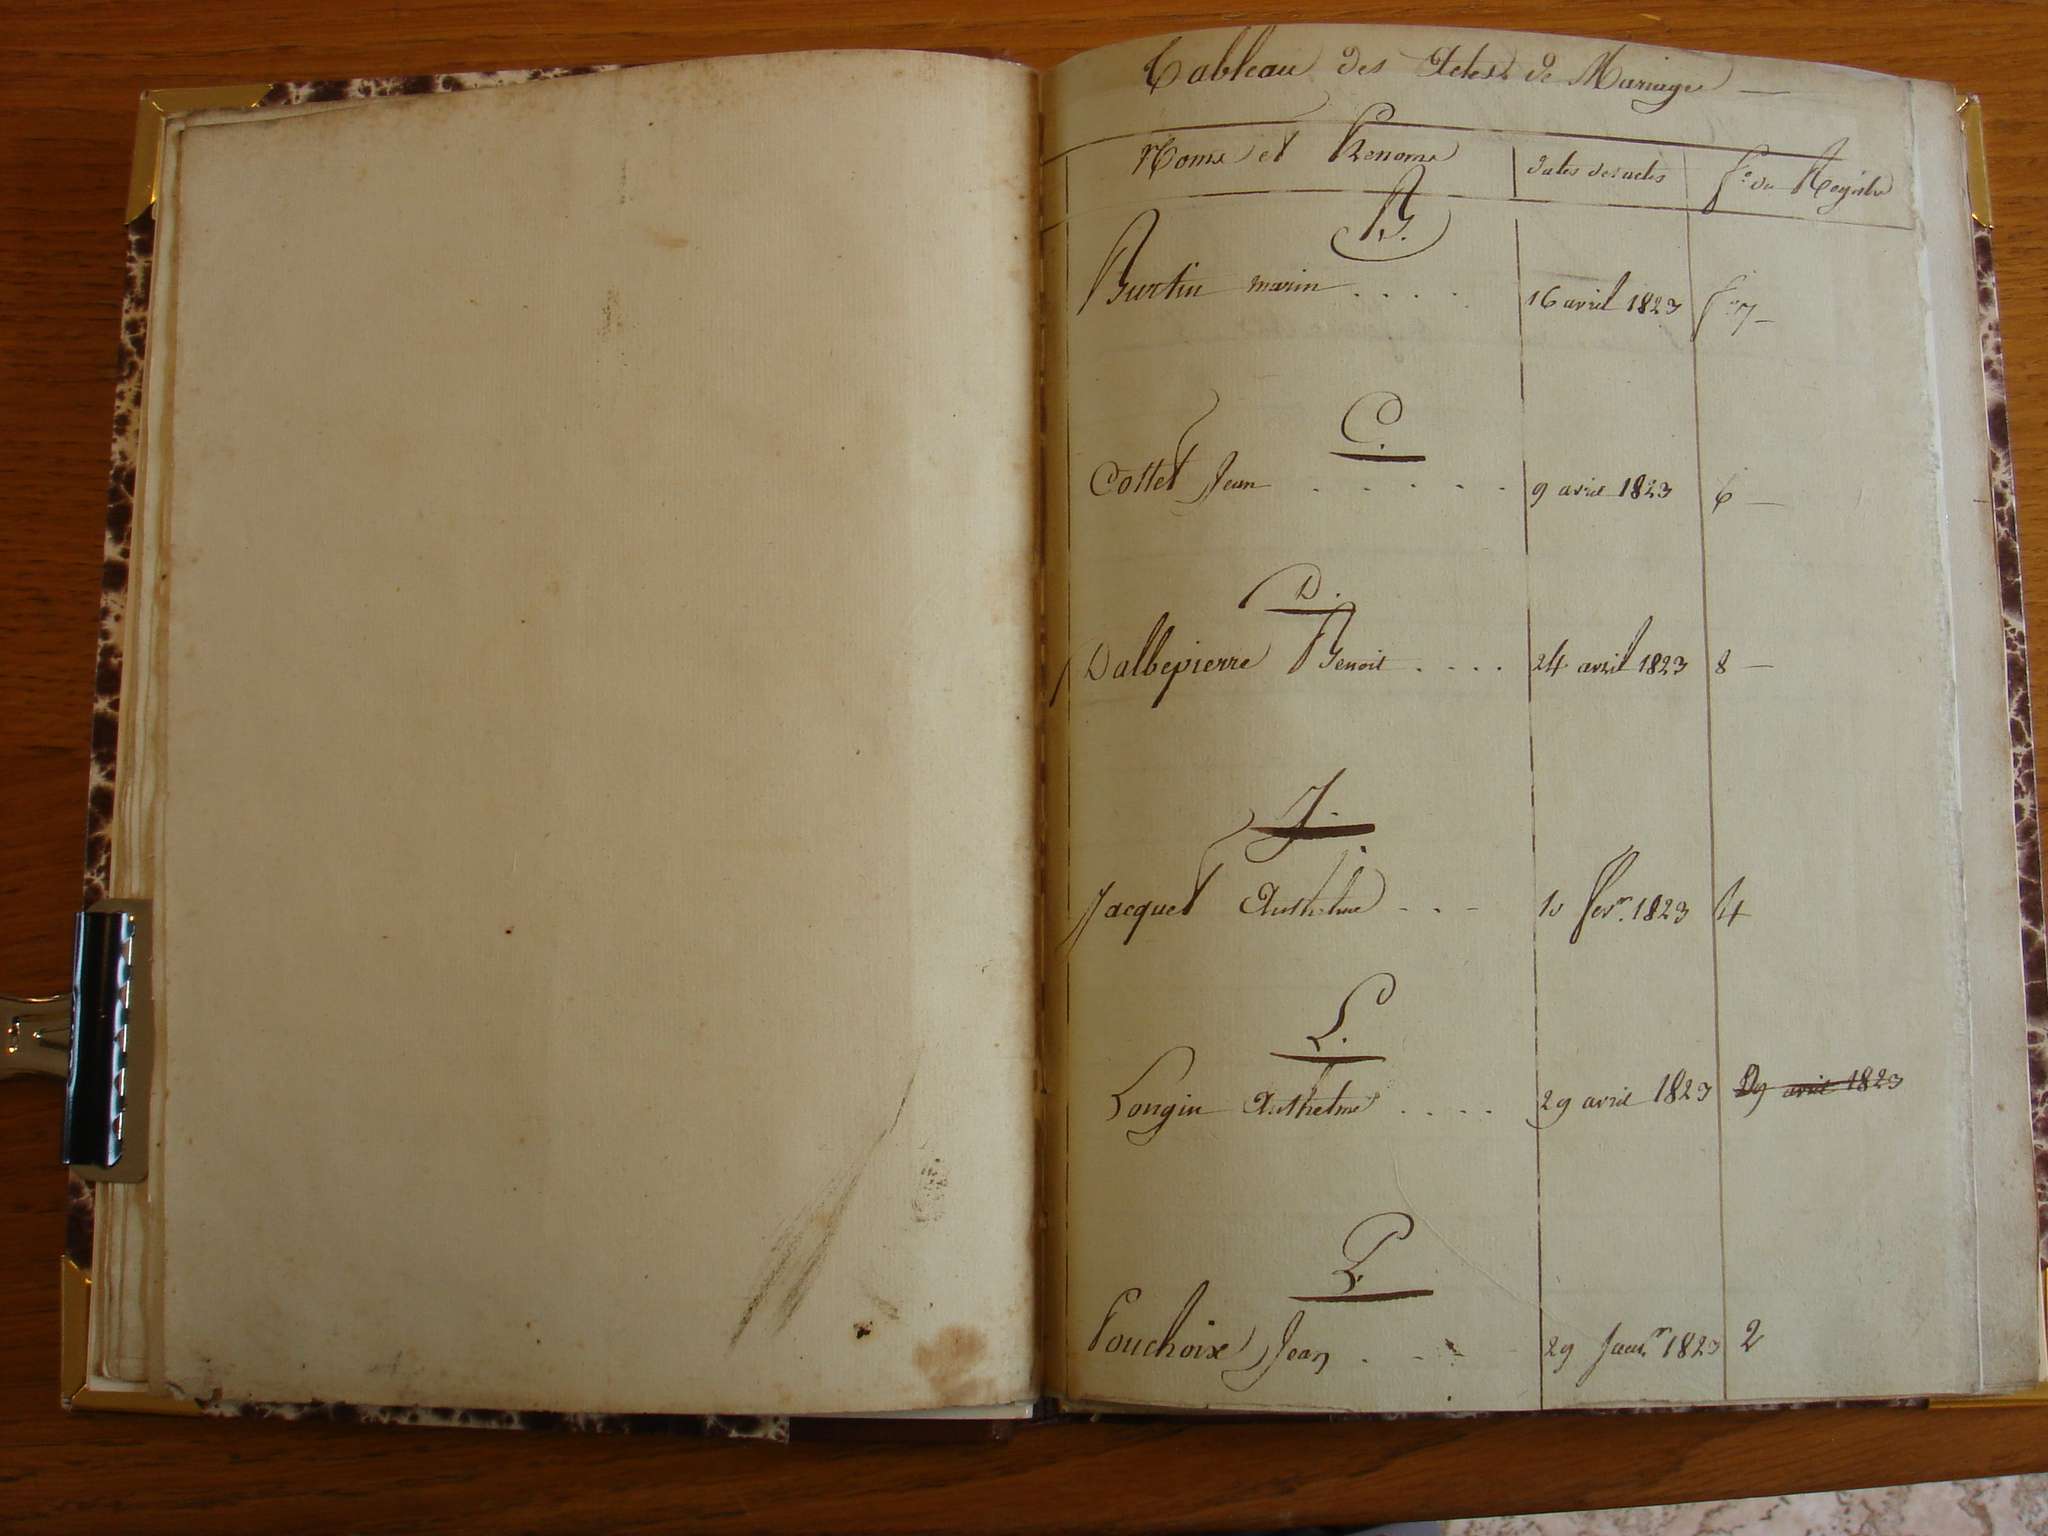 Tableau des Actes de Mariage
Noms et Prenoms dates des actes f.o du Registre
B.
Burtin marin . . . . 16 avril 1823 f.o 7
C.
Cottet Jean . . . . . 9 avril 1823 6
D.
Dalbepierre Benoit . . . . 24 avril 1823 8
J.
Jacquet Anthelme . . . 10 fevr. 1823 4
L.
Longin Anthelme . . . . 29 avril 1823 29 avril 1823
P.
Pouchoix Jean . . . 29 Janr. 1823 2